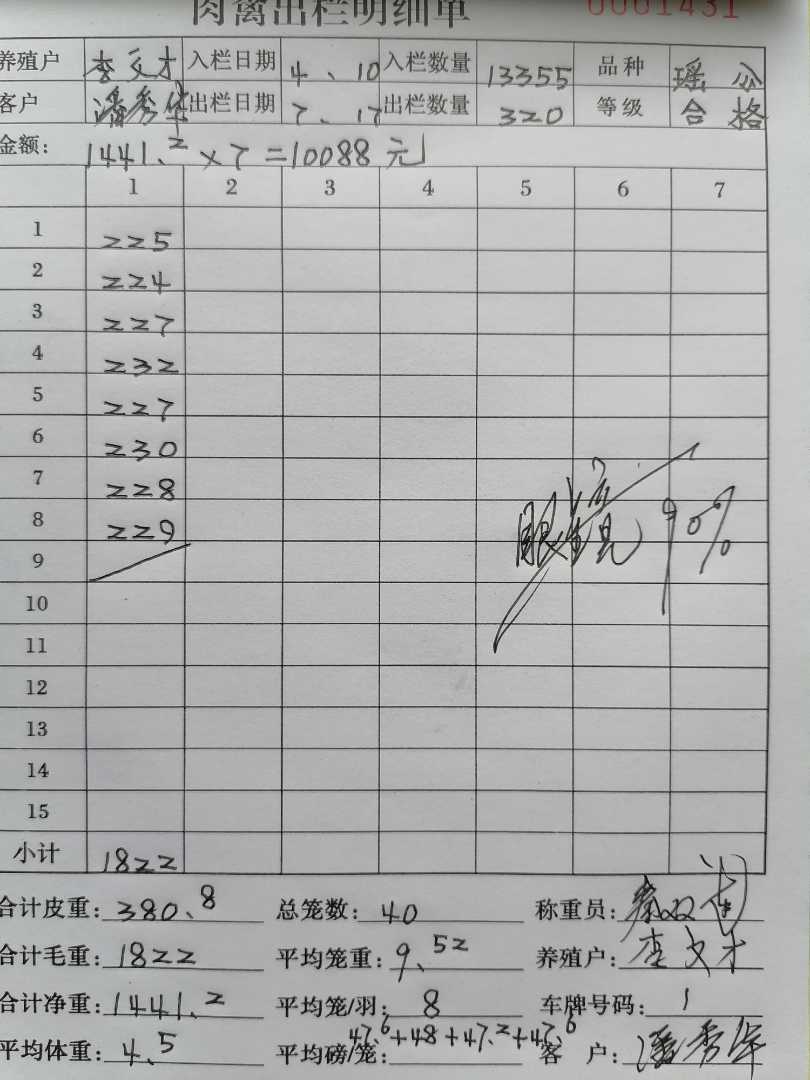 肉禽出栏明细单 0001431
养殖户 李文才 入栏日期 4、10 入栏数量 13355 品种 瑶公
客户 潘秀华 出栏日期 7、17 出栏数量 320 等级 合格
金额: 1441.2×7=10088元
1 2 3 4 5 6 7
1 225
2 224
3 227
4 232
5 227
6 230
7 228
8 229
眼镜 90%
9
10
11
12
13
14
15
小计 1822
合计皮重: 380.8 总笼数: 40 称重员:
合计毛重: 1822 平均笼重: 9.52 养殖户: 李文才
合计净重: 1441.2 平均笼/羽: 8 车牌号码: 1
平均体重: 4.5 平均磅/笼: 47.6+48+47.2+47.6 客户: 潘秀华